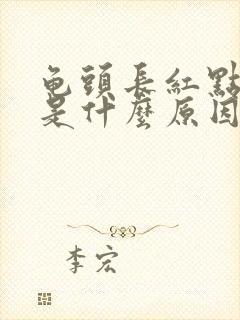 龟頭長紅點
是什麼原因
李宏